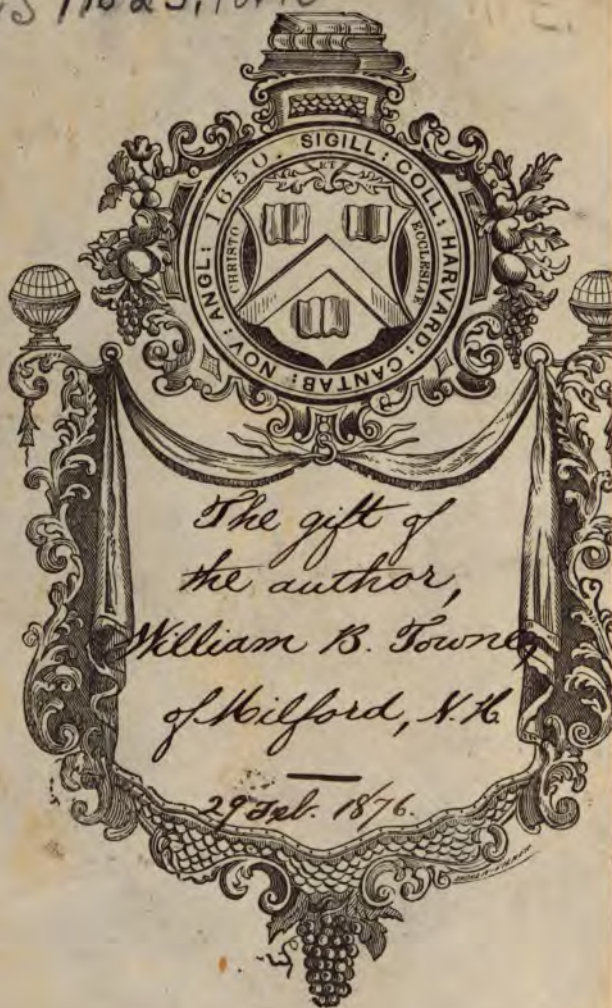 SIGILL: COLL: HARVARD: CANTAB: NOV: ANGL: 1650.
CHRISTO ET ECCLESIAE
The gift of
the author,
William B. Towne,
of Milford, N.H.
29 Feb. 1876.